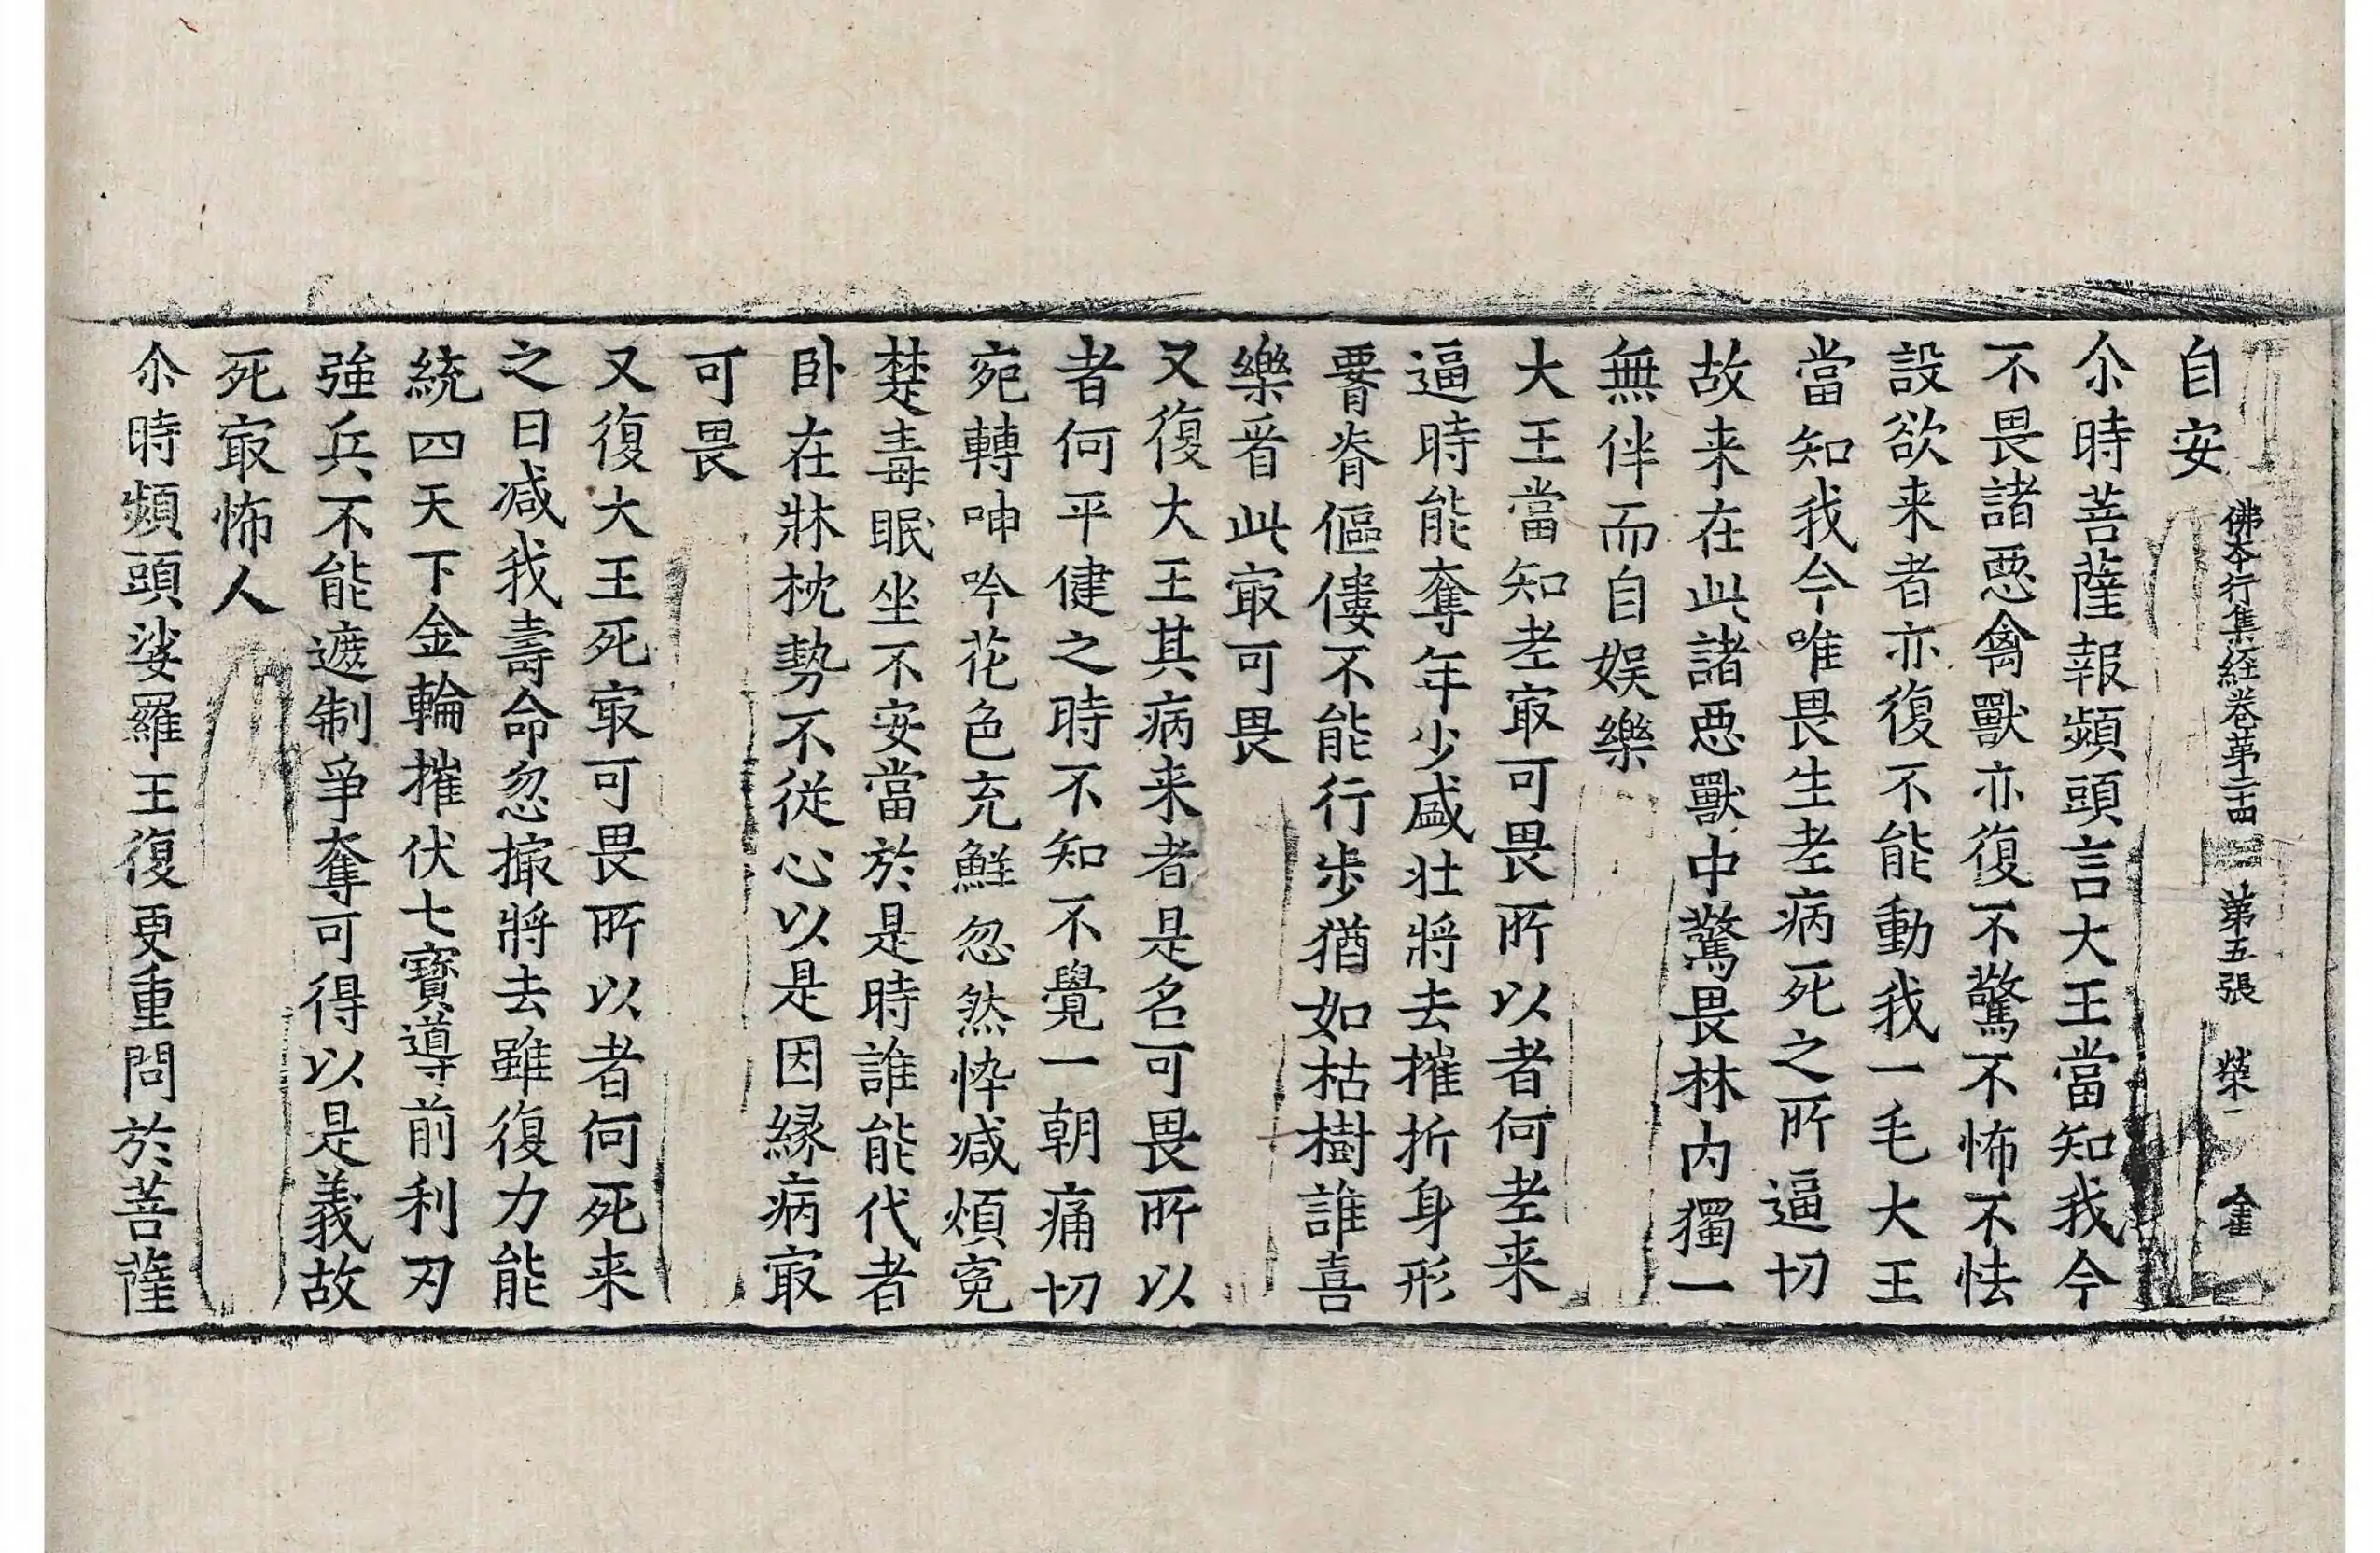 自安
佛本行集經卷第二十四 第五張 榮一 金
尒時菩薩報頻頭言大王當知我今
不畏諸惡禽獸亦復不驚不怖不怯
設欲来者亦復不能動我一毛大王
當知我今唯畏生老病死之所逼切
故来在此諸惡獸中驚畏林內獨一
無伴而自娛樂
大王當知老㝡可畏所以者何老来
逼時能奪年少盛壯將去摧折身形
𦝫脊傴僂不能行步猶如枯樹誰喜
樂看此㝡可畏
又復大王其病来者是名可畏所以
者何平健之時不知不覺一朝痛切
宛轉呻吟花色充鮮忽然悴減煩冤
楚毒眠坐不安當於是時誰能代者
臥在牀枕勢不從心以是因緣病㝡
可畏
又復大王死㝡可畏所以者何死来
之日減我壽命忽撮將去雖復力能
統四天下金輪摧伏七寶導前利刃
強兵不能遮制爭奪可得以是義故
死㝡怖人
尒時頻頭娑羅王復更重問於菩薩